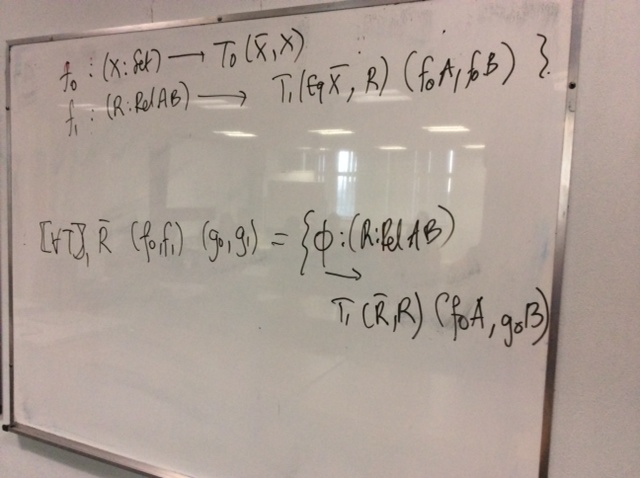 f₀ : (X : Set) ⟶ T₀ (X̄, X)
f₁ : (R : Rel A B) ⟶ T₁ (Eq X̄, R) (f₀A, f₀B) }
⟦∀T⟧₁ R̄ (f₀, f₁) (g₀, g₁) = { ϕ : (R : Rel A B)
⟶ T₁ (R̄, R) (f₀A, g₀B)